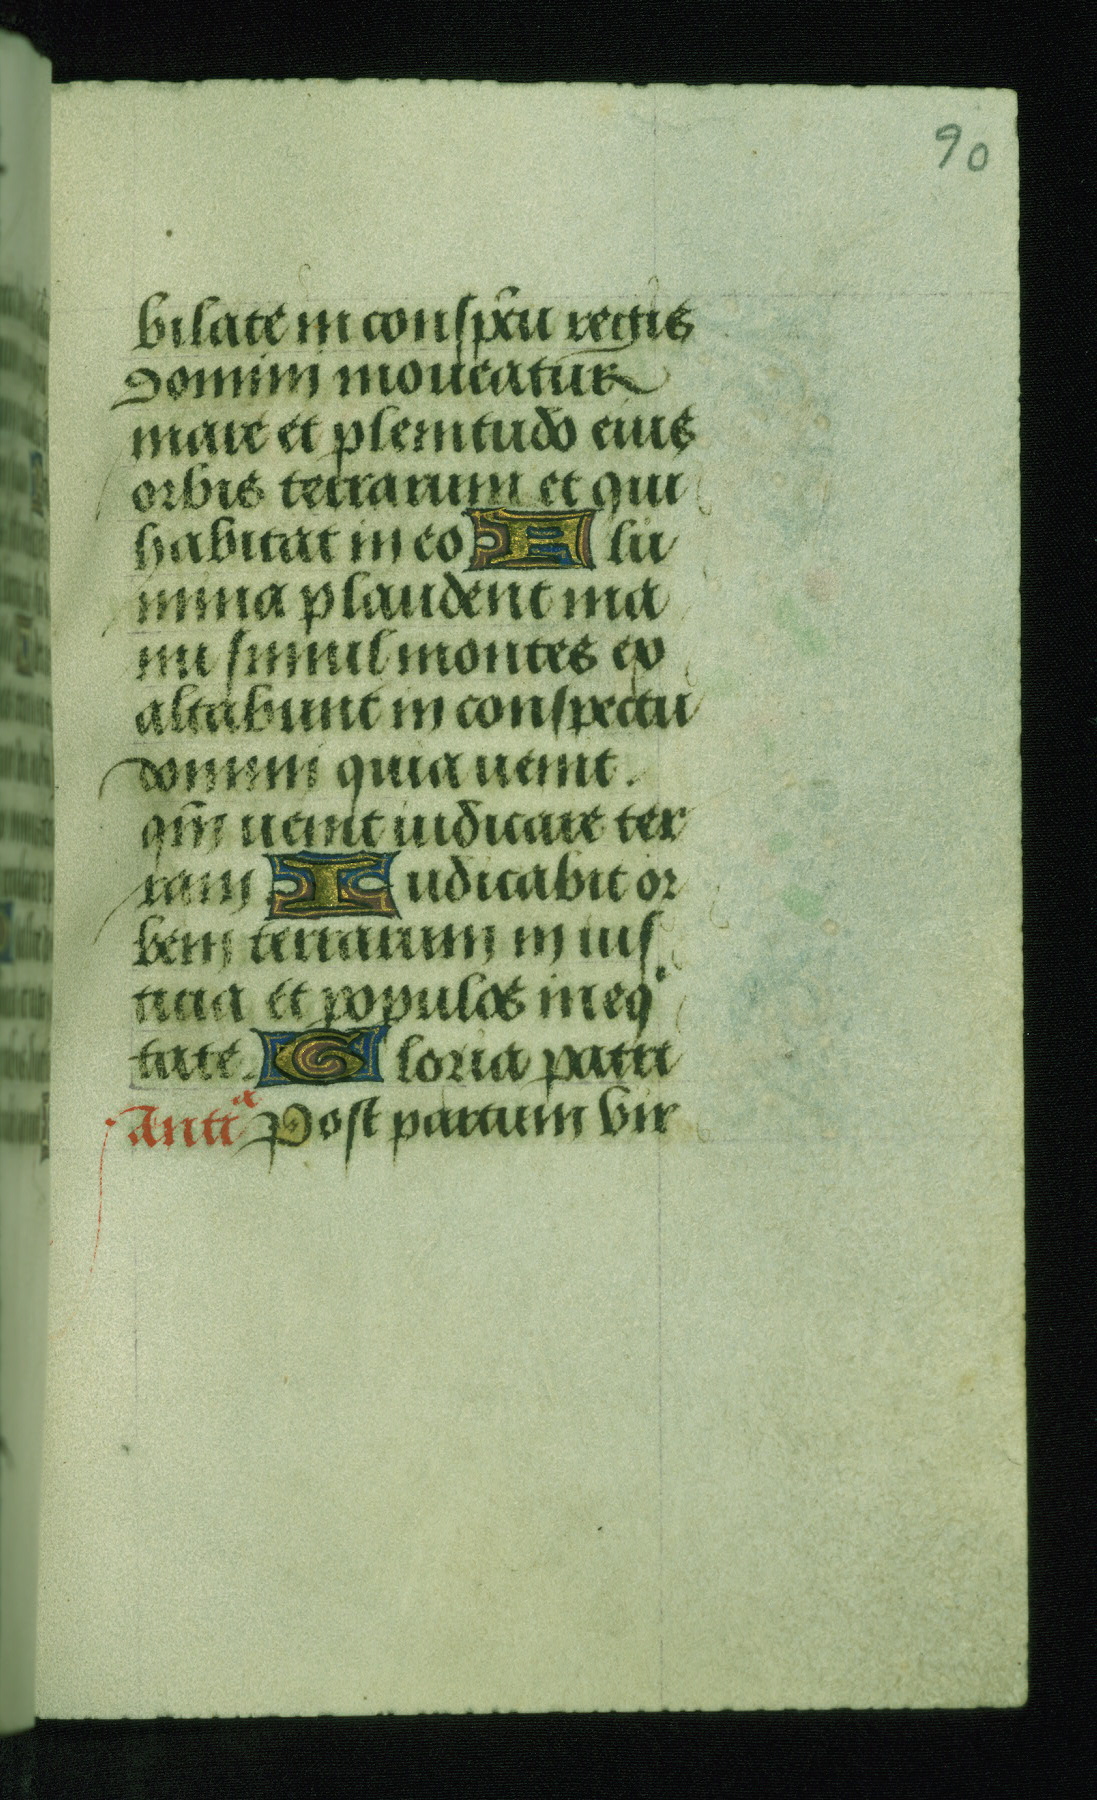 90
bilate in conspc̄tu regis
domini moueatur
mare et plenitudo eius
orbis terrarum et qui
habitat in eo Flu
mina plaudent ma
nu simul montes ex
altabunt in conspectu
domini quia uenit.
qm̄ uenit iudicare ter
ram Iudicabit or
bem terrarum in ius
ticia et populos in eqⁱ
tate. Gloria patri
Antiᵃ Post partum vir